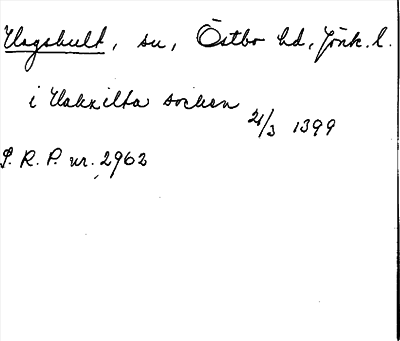 Hagshult, sn, Östbo hd, Jönk. l.
i Hakxilta socken
21/3 1399
S. R. P. nr. 2962